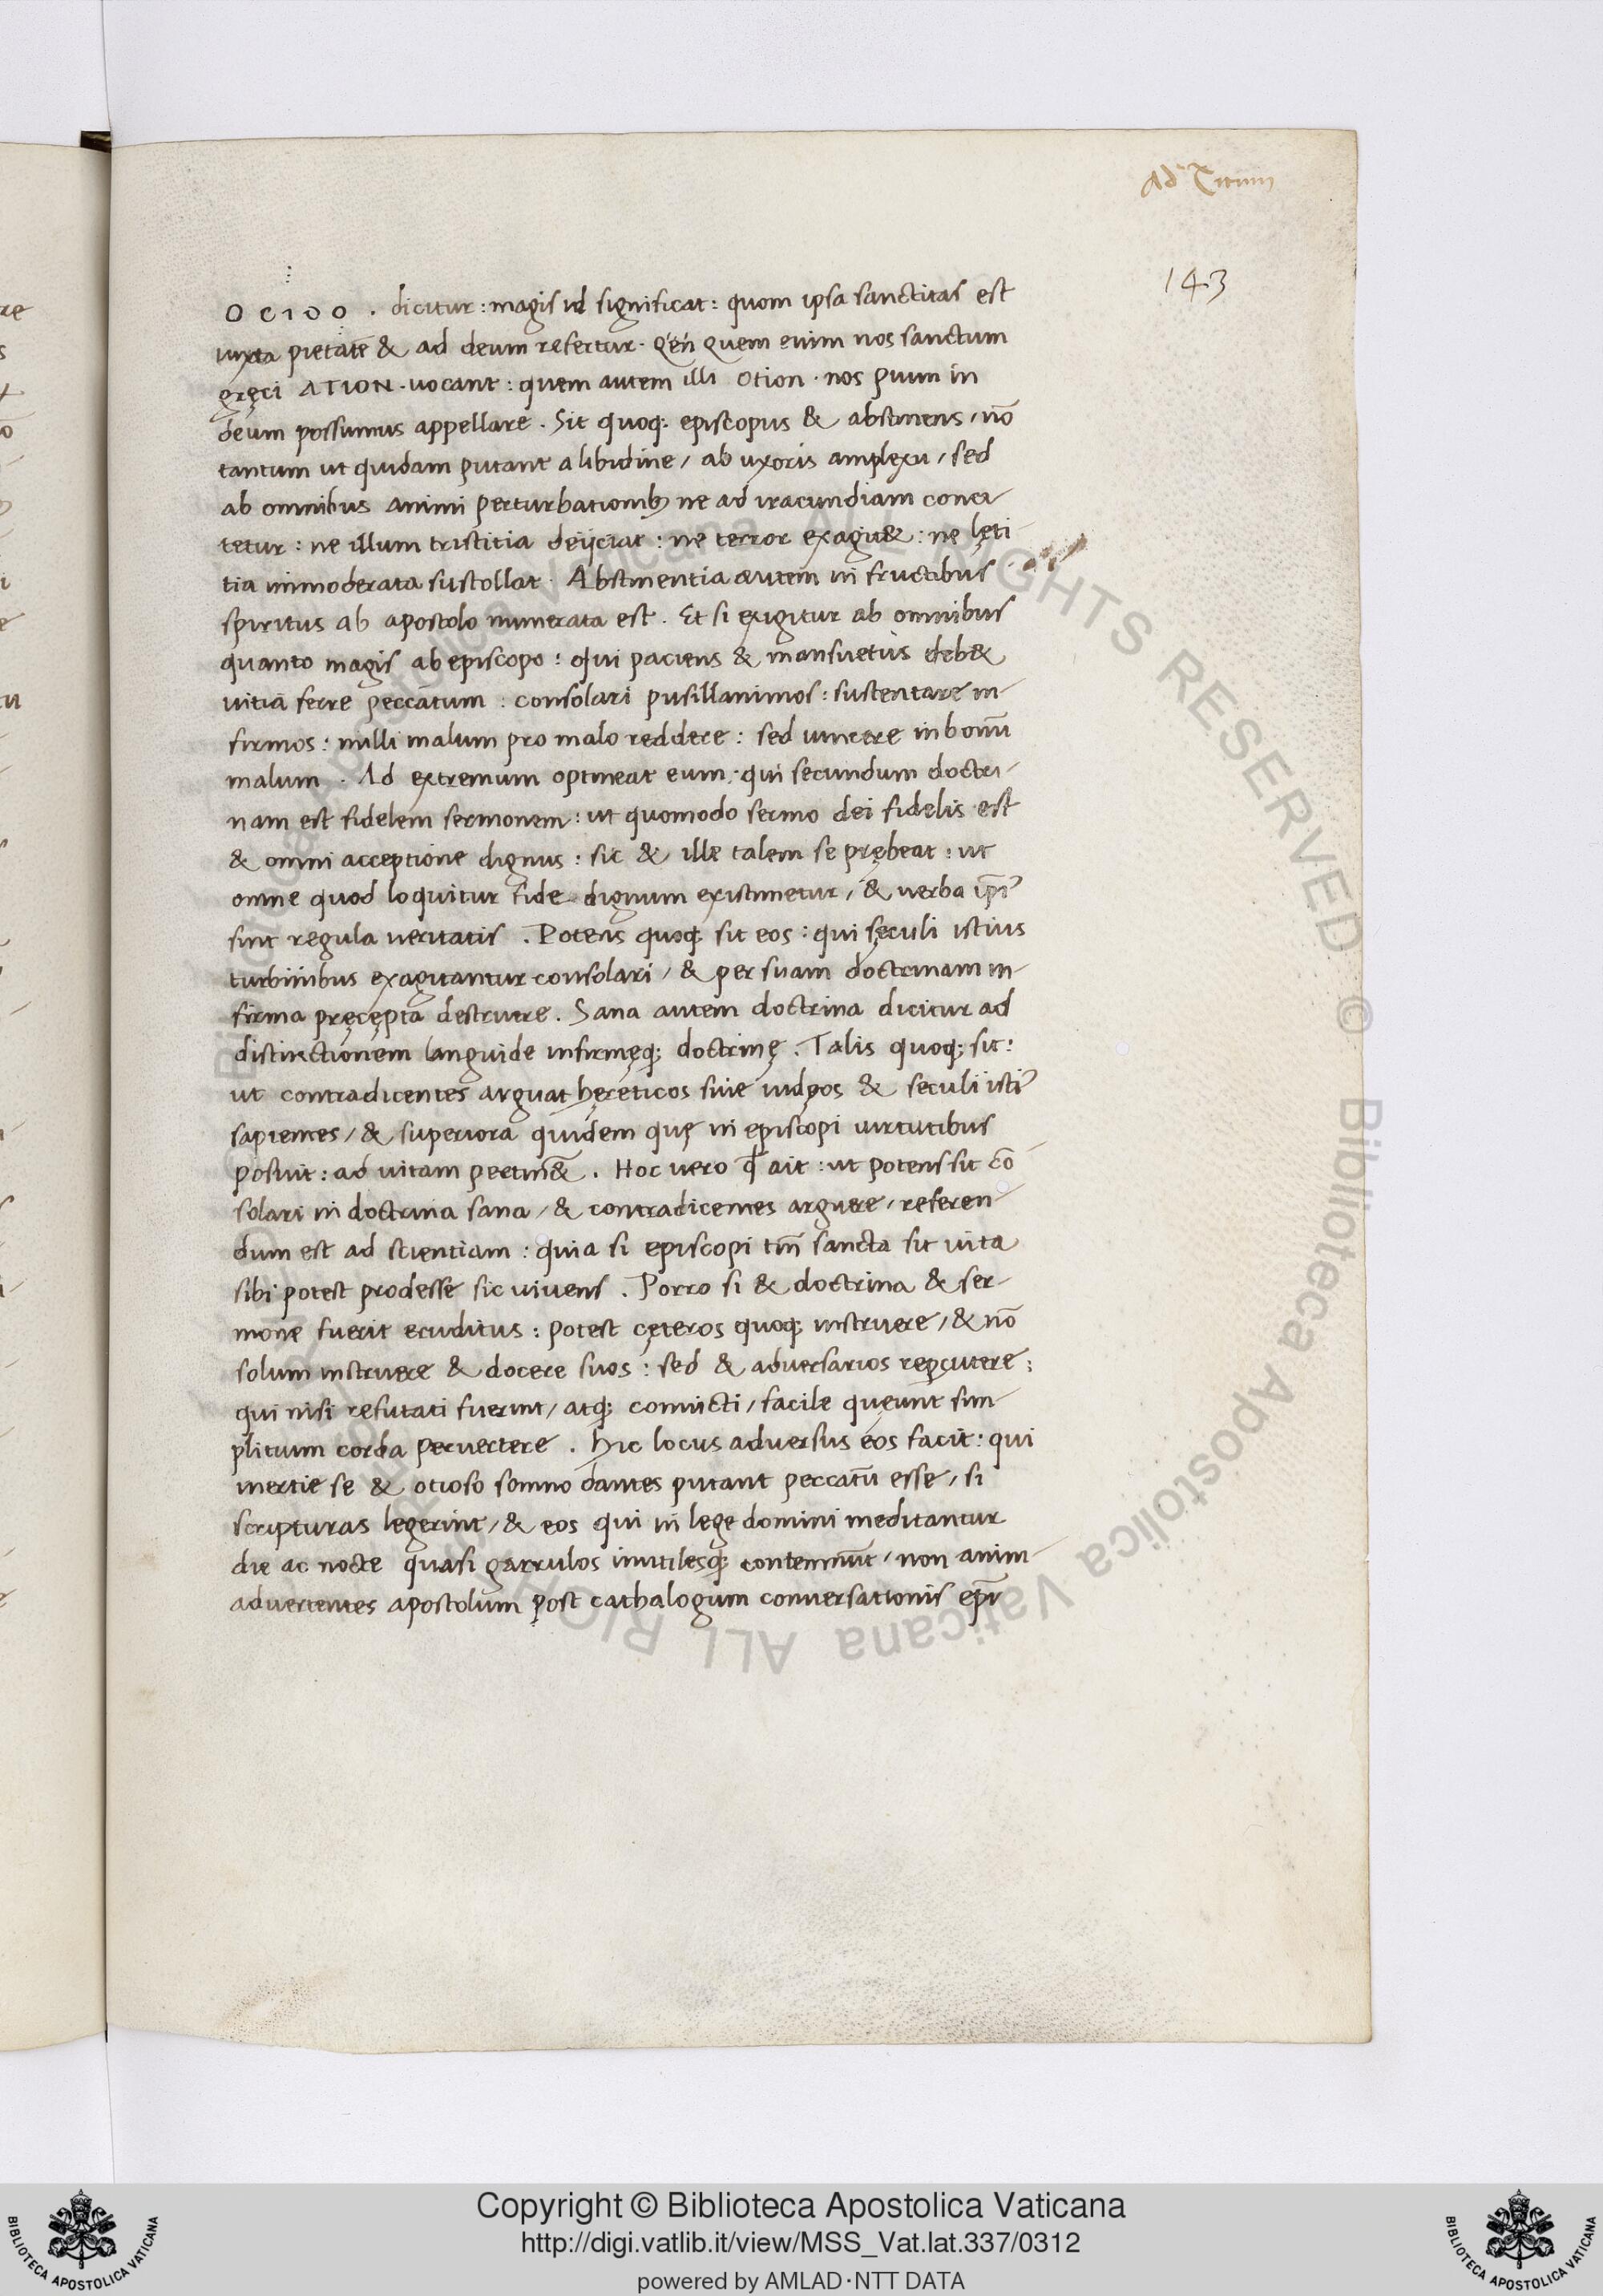 Ad Titum
143
O C I O O . dicitur : magis id significat : quom ipsa sanctitas est
iuxta pietatē & ad deum refertur . quem enim nos sanctum
gręci ΑΤΙΟΝ . uocant : quem autem illi otion . nos pium in
deum possumus appellare . Sit quoq; episcopus & abstinens / nō
tantum ut quidam putant a libidine / ab uxoris amplexu / sed
ab omnibus animi perturbationib; ne ad iracundiam conci-
tetur : ne illum tristitia deijciat : ne terror exagit& : ne lęti-
tia immoderata sustollat . Abstinentia autem in fructibus
spiritus ab apostolo numerata est . Et si exigitur ab omnibus
quanto magis ab episcopo : qui paciens & mansuetus deb&
uitia ferre peccatum : consolari pusillanimos : sustentare in-
firmos : nulli malum pro malo reddere : sed uincere in bonū
malum . Ad extremum optineat eum : qui secundum doctri-
nam est fidelem sermonem : ut quomodo sermo dei fidelis est
& omni acceptione dignus : sic & ille talem se prębeat : ut
omne quod loquitur fide dignum existimetur / & uerba ipi᷒
sint regula ueritatis . Potens quoq; sit eos : qui sęculi istius
turbinibus exagitantur consolari / & per suam doctrinam in-
firma pręcępta destruere . Sana autem doctrina dicitur ad
distinctionem languide infirmęq; doctrinę . Talis quoq; sit :
ut contradicentes arguat hęreticos siue iudęos & seculi isti᷒
sapientes / & superiora quidem quę in episcopi uirtutibus
posuit : ad uitam pertin& . Hoc uero ꝙ ait : ut potens sit cō
solari in doctrina sana / & contradicentes arguere / referen-
dum est ad scientiam : quia si episcopi tm̄ sancta sit uita
sibi potest prodesse sic uiuens . Porro si & doctrina & ser-
mone fuerit eruditus : potest cęteros quoq; instruere / & nō
solum instruere & docere suos : sed & aduersarios repcutere :
qui nisi refutati fuerint / atq; conuicti / facile queunt sim-
plicium corda peruertere . Hic locus aduersus eos facit : qui
inertie se & otioso somno dantes putant peccatū esse / si
scripturas legerint / & eos qui in lege domini meditantur
die ac nocte quasi garrulos inutilesq; contemnūt / non anim-
aduertentes apostolum post cathalogum conuersationis epī
Copyright © Biblioteca Apostolica Vaticana
http://digi.vatlib.it/view/MSS_Vat.lat.337/0312
powered by AMLAD·NTT DATA
BIBLIOTECA APOSTOLICA VATICANA
BIBLIOTECA APOSTOLICA VATICANA